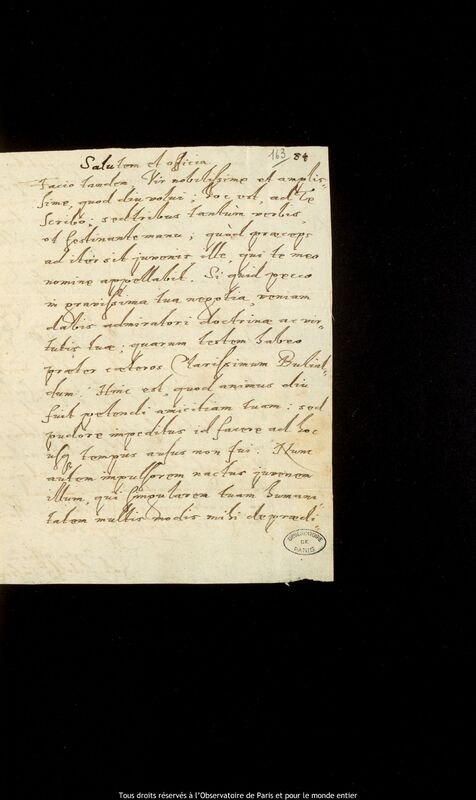 163 84
Salutem et officia
Facio tandem Vir nobilissime et amplis=
sime, quod diu volui; hoc est, ad Te
scribo; sed tribus tantùm verbis,
et festinante manu; quòd præceps
ad iter sit juvenis ille, qui te meo
nomine appellabit. Si quid pecco
in gravissima tua negotia, veniam
dabis admiratori doctrinæ ac vir=
tutis tuæ; quarum testem habeo
præter cæteros Clarissimum Bulial=
dum. Hinc est, quod animus diu
fuit petendi amicitiam tuam: sed
pudore impeditus id facere ad hoc
usq tempus ausus non fui. Nunc
autem impulsorem nactus juvenem
illum, qui singularem tuam humani=
tatem multis modis mihi deprædi=
OBSERVATOIRE
DE
PARIS
Tous droits réservés à l'Observatoire de Paris et pour le monde entier